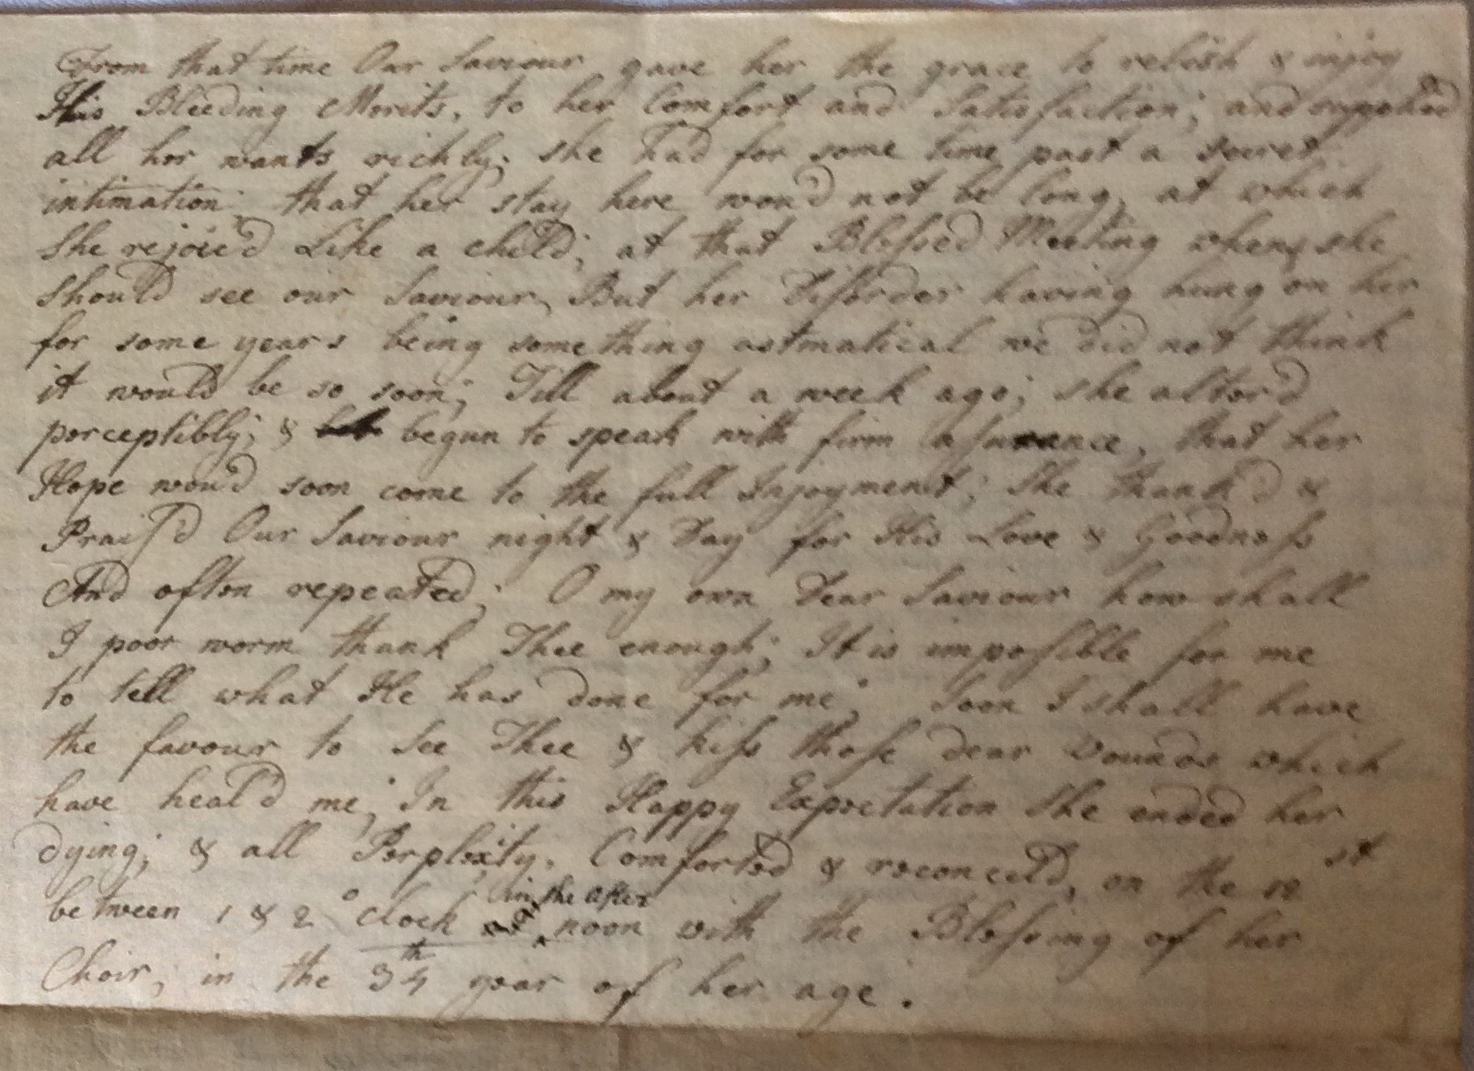 From that time Our Saviour gave her the grace to relish & injoy
His Bleeding Merits, to her Comfort and Satisfaction; and supplied
all her wants richly; she had for some time past a secret
intimation; that her stay here wou'd not be long, at which
She rejoic'd Like a child; at that Blessed Meeting when she
should see our Saviour, But her Disorder having hung on her
for some years being something astmatical we did not think
it would be so soon; Till about a week ago; she alter'd
perceptibly; & begun to speak with firm assurance, that her
Hope wou'd soon come to the full Injoyment; She thank'd &
Prais'd Our Saviour night & Day for His Love & Goodness
And often repeated; O my own Dear Saviour how shall
I poor worm thank Thee enough; It is impossible for me
to tell what He has done for me; Soon I shall have
the favour to See Thee & kiss those dear Wounds which
have heal'd me; In this Happy Expectation She ended her
dying; & all Perplexity. Comforted & reconceld, on the 12st
between 1 & 2 o clock in the after noon with the Blessing of her
Choir, in the 34th year of her age.